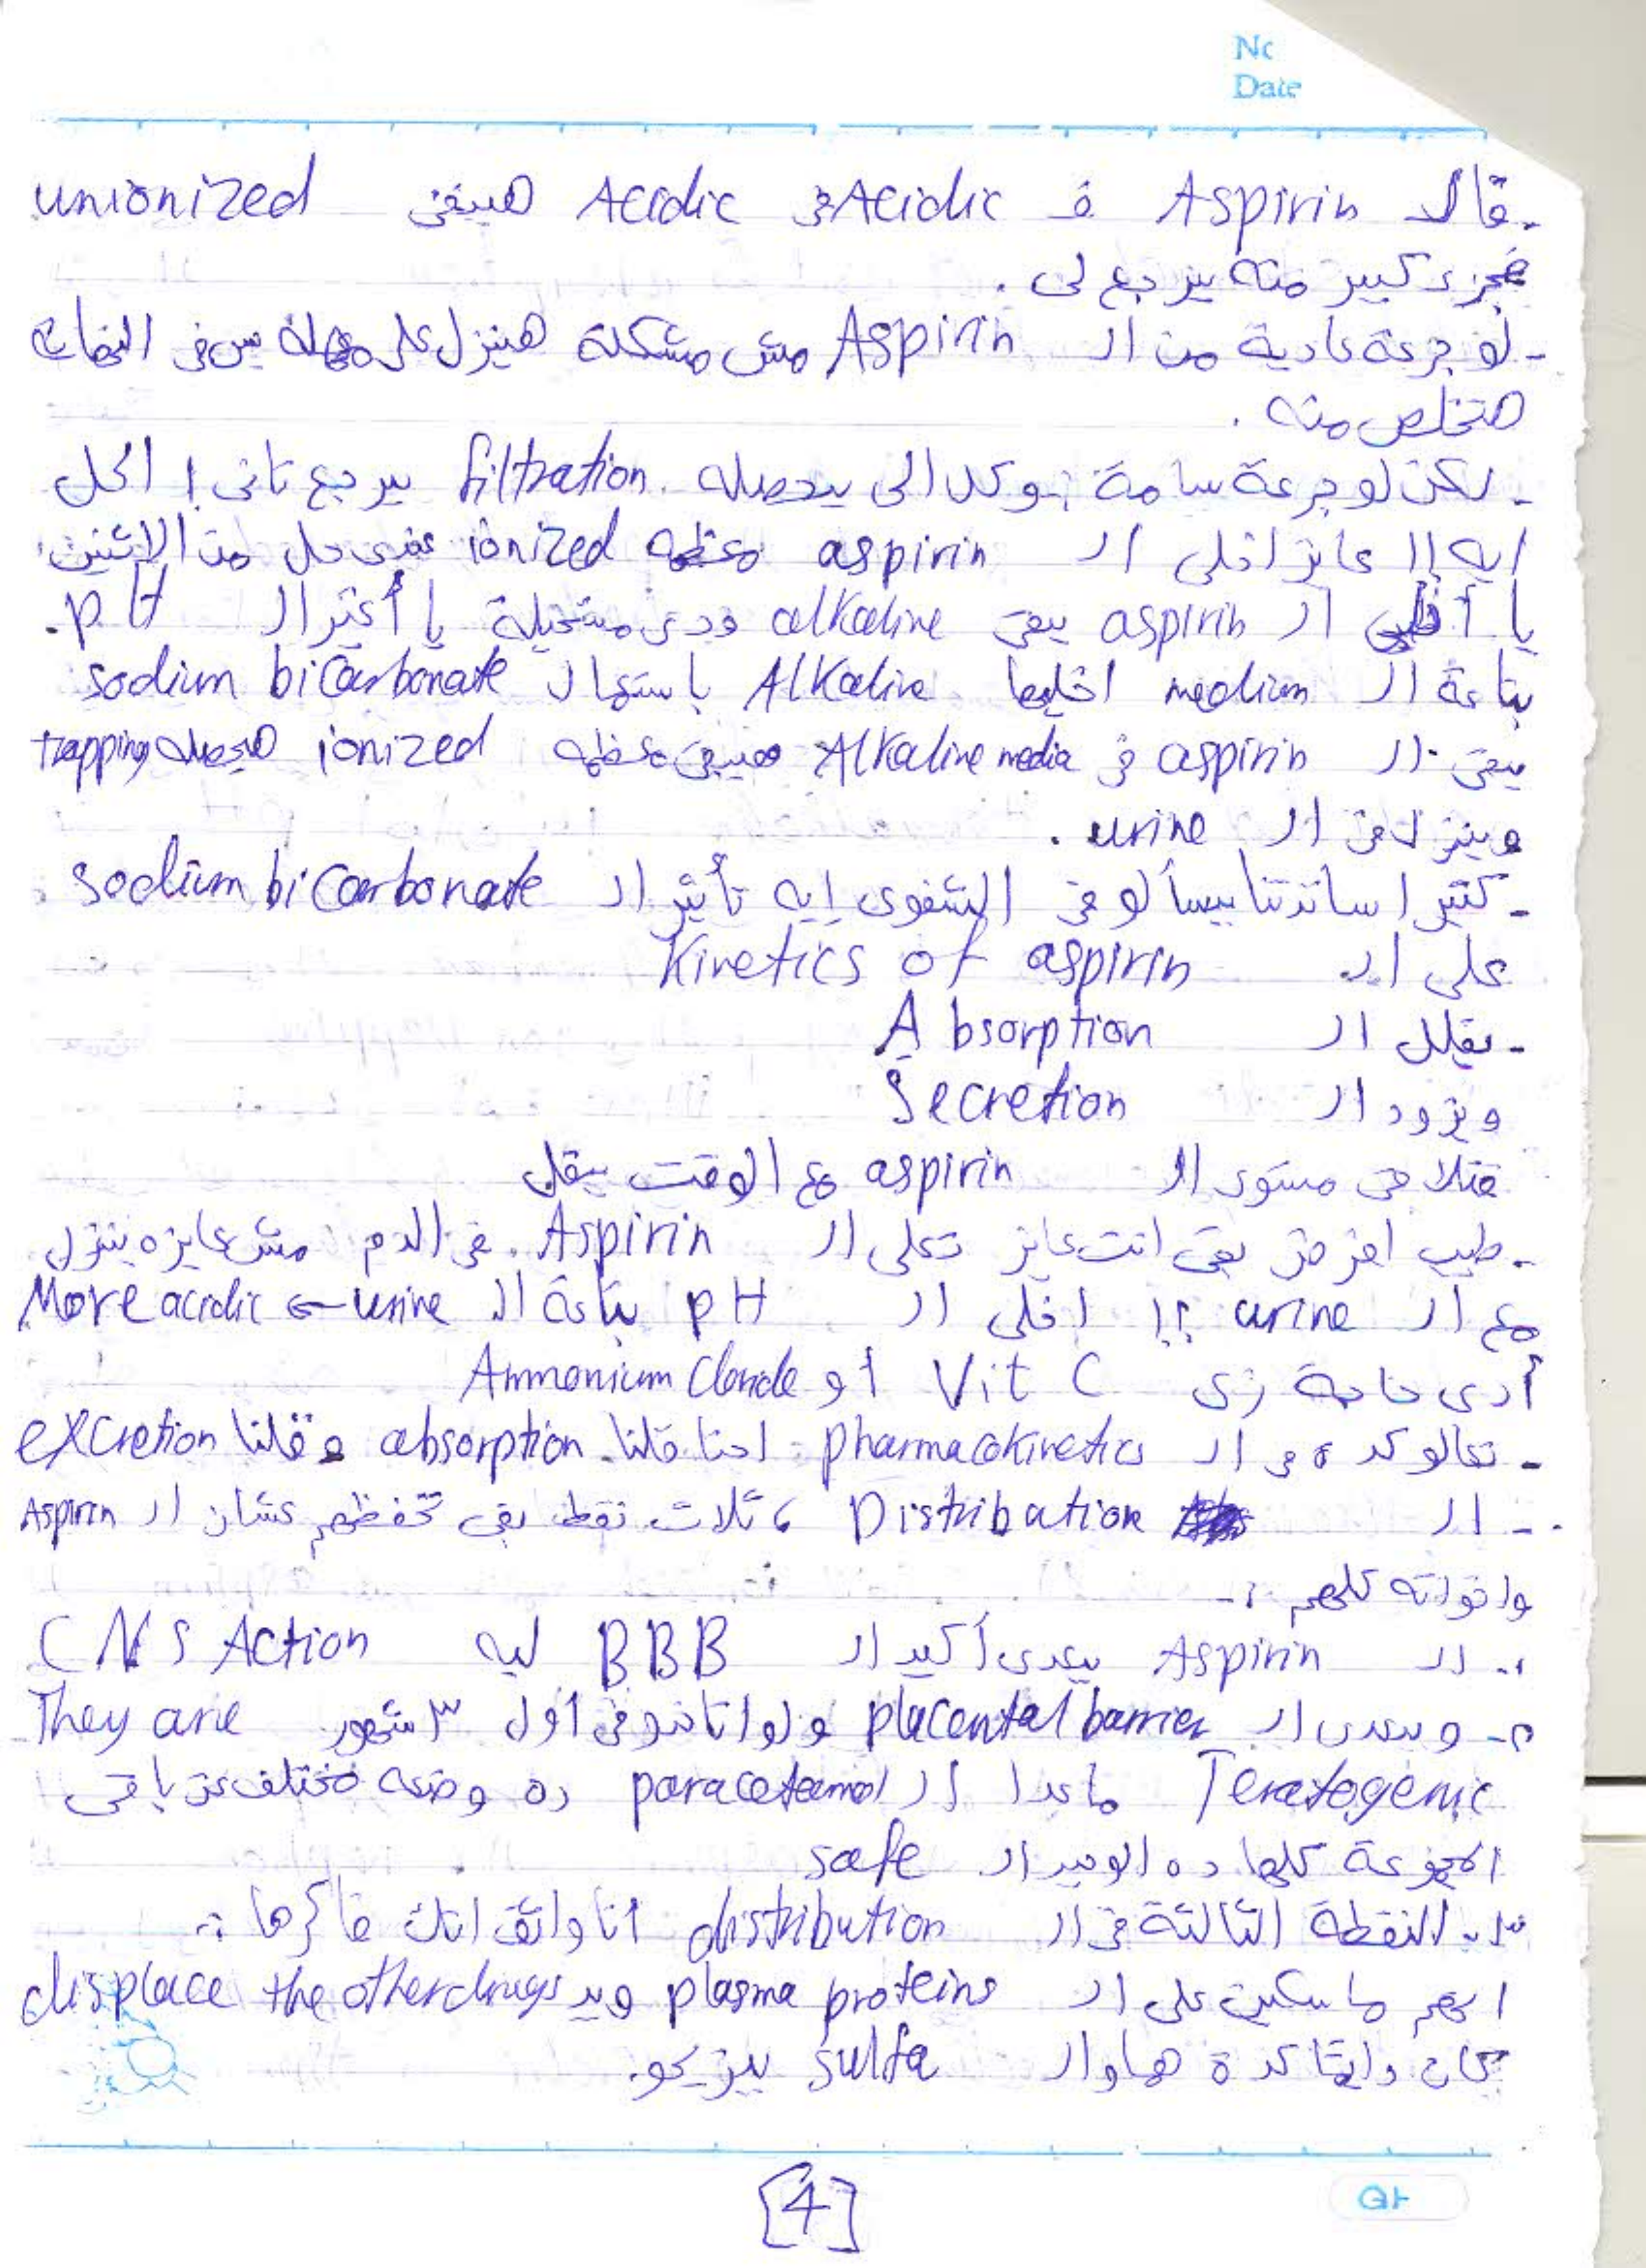 No
Date
- فالـ Aspirin فـ Acidic في Acidic هيبقى unionized
فجزء كبير منه يرجع لى .
- لو جرعة عادية من الـ Aspirin مش مشكلة هينزل على مهله بس في النهاية
هتخلص منه .
- لكن لو جرعة سامة وكل الى بيحصله filtration يرجع تانى ! الحل
ايه !! عايز اخلى الـ aspirin معظمه ionized عندى حل من الاتنين
يا أخلى الـ aspirin يبقى alkaline ودى مستحيلة يا أغير الـ pH.
بتاعة الـ medium اخليها Alkaline باستعمال sodium bicarbonate
يبقى الـ aspirin في Alkaline media هيبقى معظمه ionized هيحصله trapping
وينزل في الـ urine .
- كتير اساتذتنا بيسألو في الشفوى إيه تأثير الـ Sodium bicarbonate
على الـ Kinetics of aspirin
- يقلل الـ Absorption
ويزود الـ Secretion
فتلاقى مستوى الـ aspirin مع الوقت بيقل
- طيب افرض بقى انت عايز تعلى الـ Aspirin في الدم مش عايزه ينزل
مع الـ urine ؟! اخلى الـ pH بتاعة الـ urine ← More acidic
أدى حاجة زى Vit C او Ammonium Cloride
- تعالو كده في الـ pharmacokinetics احنا قلنا absorption و قلنا excretion
- الـ Distribution ، ثلاث نقط بقى تحفظهم عشان الـ Aspirin
واخواته كلهم :-
١- الـ Aspirin بيعدى أكيد الـ BBB ليه CNS Action
٢- وبيعدى الـ placental barrier ولو اتاخدو في أول ٣ شهور They are
Teratogenic ماعدا الـ paracetamol ده وضعه مختلف عن باقى
المجموعة كلها ده الوحيد الـ safe
٣- النقطة الثالثة في الـ distribution انا واثق انك فاكرها :
انهم ماسكين على الـ plasma proteins وبـ displace the other drugs
جامد ودايما كدة هما والـ sulfa
[4]